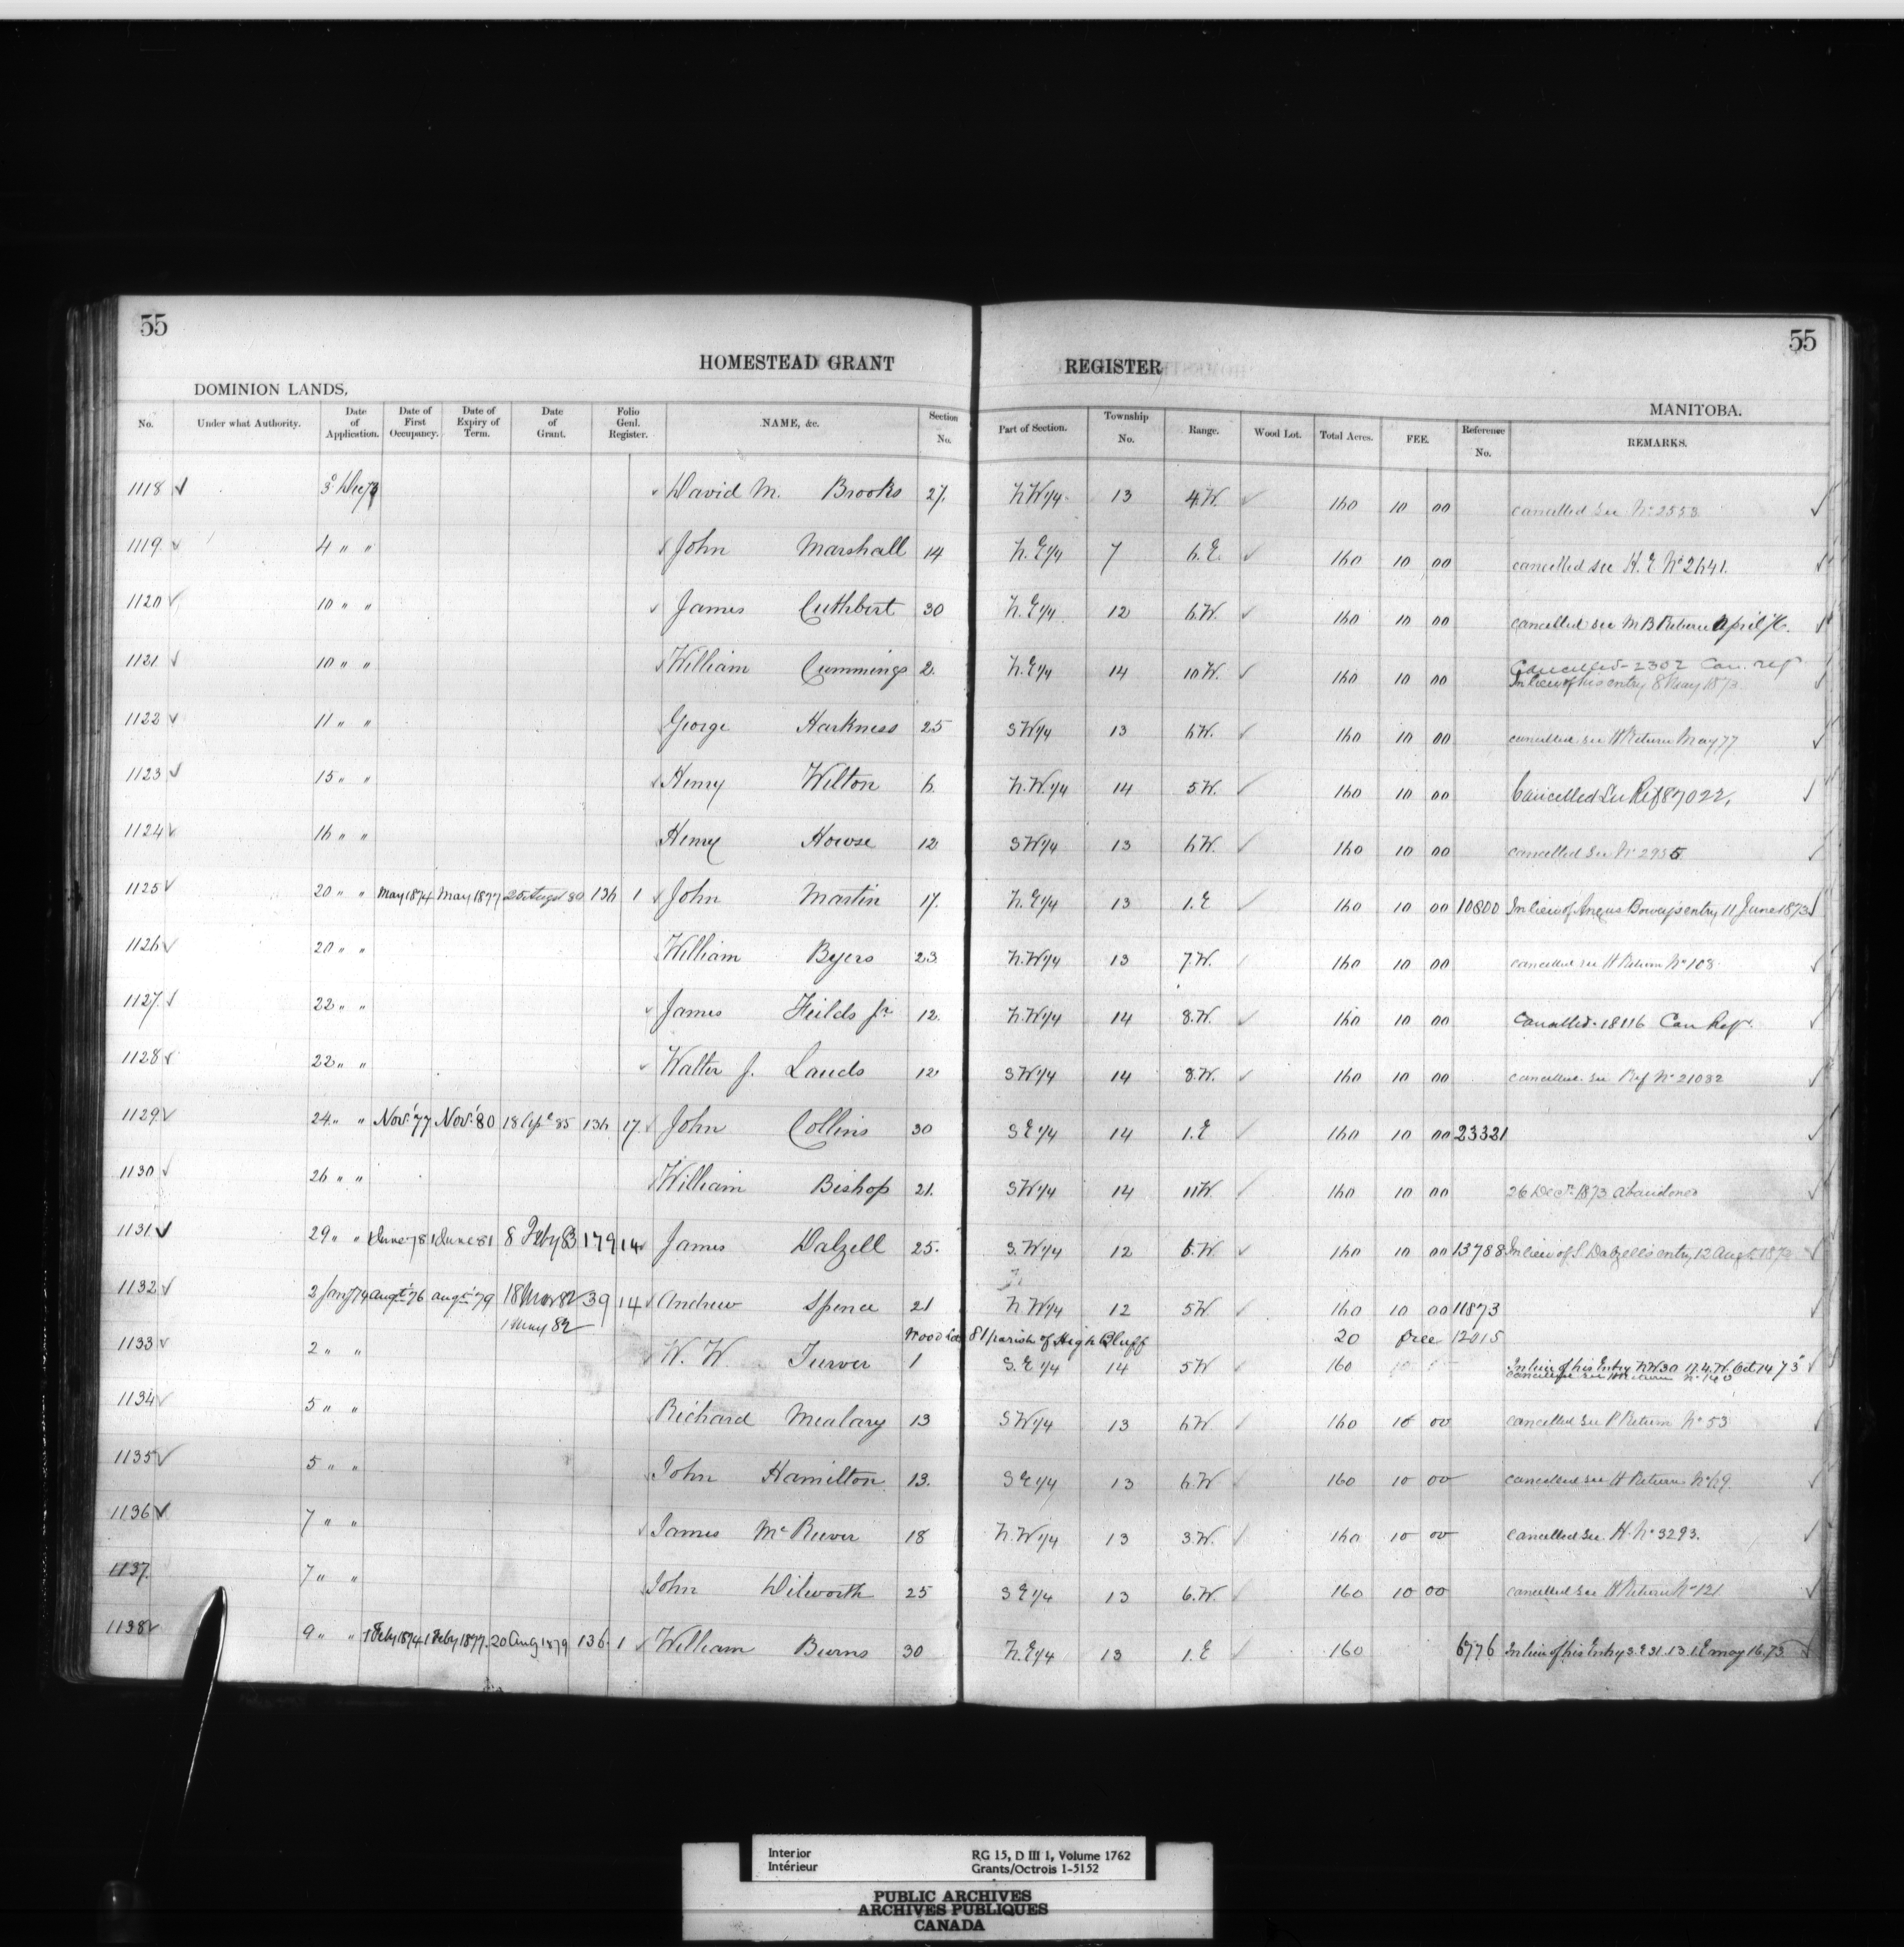 55 55
HOMESTEAD GRANT REGISTER
DOMINION LANDS. MANITOBA.
No. Under what Authority. Date of Application. Date of First Occupancy. Date of Expiry of Term. Date of Grant. Folio Genl. Register. NAME, &c. Section No. Part of Section. Township No. Range. Wood Lot. Total Acres. FEE. Reference No. REMARKS.
1118 3 Dec 73 David M. Brooks 27. N.W 1/4 13 4.W. 160 10 00 cancelled see No 2553
1119 4 " " John Marshall 14 N.E 1/4 7 6.E. 160 10 00 cancelled see H.E No 2641.
1120 10 " " James Cuthbert 30 N.E 1/4 12 6.W. 160 10 00 cancelled see M B Return April 76.
1121 10 " " William Cummings 2. N.E 1/4 14 10 W. 160 10 00 Cancelled - 2302 Can. ref
In lieu of his entry 8 May 1873
1122 11 " " George Harkness 25 S W 1/4 13 6W. 160 10 00 cancelled see H Return May 77
1123 15 " " Henry Wilton 6 N.W. 1/4 14 5 W. 160 10 00 Cancelled See Ref 87022.
1124 16 " " Henry Howse 12 S W 1/4 13 6W. 160 10 00 cancelled See No 2935
1125 20 " " May 1874 May 1877 25 Augst 80 136 1 John Martin 17. N.E 1/4 13 1.E 160 10 00 10800 In lieu of Angus entry 11 June 1873
1126 20 " " William Byers 23 N.W 1/4 13 7.W. 160 10 00 cancelled see H Return No 108
1127 22 " " James Feilds Jr 12. N.W 1/4 14 8.W. 160 10 00 Cancelled - 18116 Can Ref.
1128 22 " " Walter J. Lauds 12 S W 1/4 14 8.W. 160 10 00 cancelled. see Ref No 21082
1129 24 " " Nov. '77 Nov. '80 18 85 136 17 John Collins 30 S E 1/4 14 1.E 160 10 00 23321
1130 26 " " William Bishop 21. S W 1/4 14 11 W. 160 10 00 26 Decr 1873 abandoned
1131 29 " " June 78 June 81 8 Feby 83 179 14 James Dalzell 25. S.W 1/4 12 6.W 160 10 00 13788 In lieu of S Dalzell's entry 12 Augt 1872
1132 2 Jany 74 augt '76 augt '79 18 Mar 82 39 14 Andrew Spence 21 N W 1/4 12 5 W 160 10 00 11873
1 May 82 Wood Lot 81 parish of High Bluff 20 free 12015
1133 2 " " W. W. Turver 1 S.E 1/4 14 5 W 160 In lieu of his Entry N.W 30 17.4.W. Oct 14 73
cancelled see H Return No 140
1134 5 " " Richard Mealary 13 S W 1/4 13 6 W 160 10 00 cancelled see P Return No 53
1135 5 " " John Hamilton 13. S E 1/4 13 6.W 160 10 00 cancelled see H Return No 69
1136 7 " " James McReever 18 N.W 1/4 13 3.W. 160 10 00 cancelled see. H. No 3293.
1137 7 " " John Dilworth 25 S E 1/4 13 6.W. 160 10 00 cancelled see H Return No 121
1138 9 " " 1 Feby 1874 1 Feby 1877. 20 Aug 1879 136 1 William Burns 30 N.E 1/4 13 1.E 160 6776 In lieu of his Entry S.E 31.13.1.E may 16.73
Interior RG 15, D III 1, Volume 1762
Intérieur Grants/Octrois 1-5152
PUBLIC ARCHIVES
ARCHIVES PUBLIQUES
CANADA